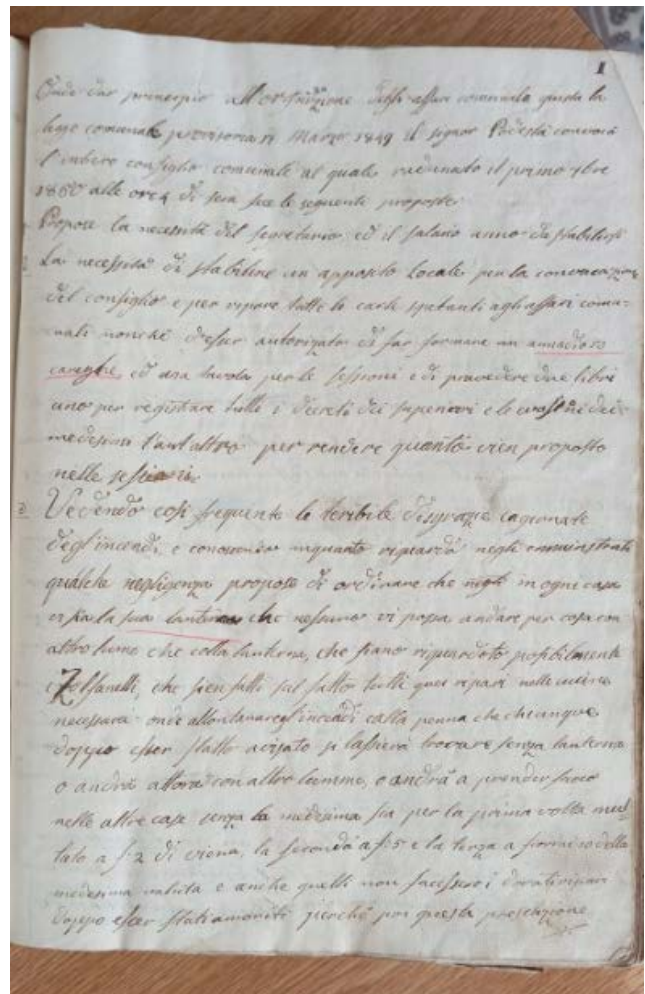 1
Onde dar principio all'organizzazione degli affari comunali giusta la
legge comunale provisoria 17 Marzo 1849 il signor Podestà convocò
l'intiero consiglio comunale al quale radunato il primo 7bre
1850 alle ore 4 di sera fece le seguenti proposte
Propose la necessità del segretario ed il salario anno da stabilirsi
La necessità di stabilire un apposito Locale per la convocazione
del consiglio e per riporre tutte le carte spetanti agli affari comu=
nali nonchè d'esser autorizato di far formare un
careghe, ed una tavola per le sessioni e di provedere due libri
uno per registare tutti i decreti dei superiori e le evasioni dei
medesimi l'aut altro per rendere quanto vien proposto
nelle sessioni
3 Vedendo così frequente le teribile disgrazie cagionate
degl'incendi, e conoscendo inquanto riguardo negli amministrati
qualche negligenza propose di ordinare che in ogni casa
vi sia la sua lanterna che nessuno vi possa andare per casa con
altro lume che colla lanterna, che siano riguardoto possibilmente
i Zolfanelli, che sien fatti sul fatto tutti quei ripari nelle cucine
necessari onde allontanare gl'incendi colla penna che chiunque
doppo esser statto avisato si lassierà trovare senza lanterna
o andrà attorno con altro lumme, o andrà a prender fuoco
nelle altre case senza la medesima sia per la prima volta mul
tato a f: 2 di viena, la seconda a f: 5 e la terza a fiorini 10 della
medesima valuta e anche quelli non facessero i dovuti ripari
doppo esser stati amoniti perchè poi questa prescrizione